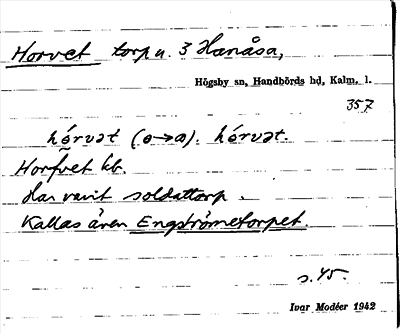 Horvet torp u. 3 Hanåsa,
Högsby sn, Handbörds hd, Kalm. l.
357
hó̰rvət (o→a). hórvət.
Horfvet kb.
Har varit soldattorp.
Kallas även Engströmetorpet.
s. 45.
Ivar Modéer 1942